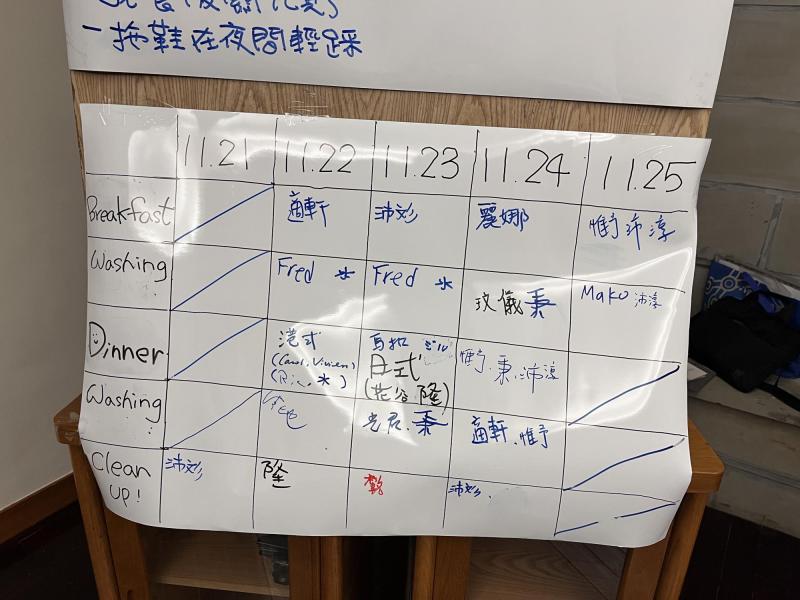 一拖鞋在夜間輕踩
11.21 11.22 11.23 11.24 11.25
Breakfast 適軒 沛妙 麗娜 惟予 沛淳
Washing Fred 水 Fred 水 玟儀 秉 Mako 沛淳
Dinner 港式 馬扣
(Carol, Vivien) 日式 惟予, 秉, 沛淳
(花谷, 隆)
Washing 光君, 秉 適軒, 惟予
Clean 沛妙 隆 沛妙
UP!